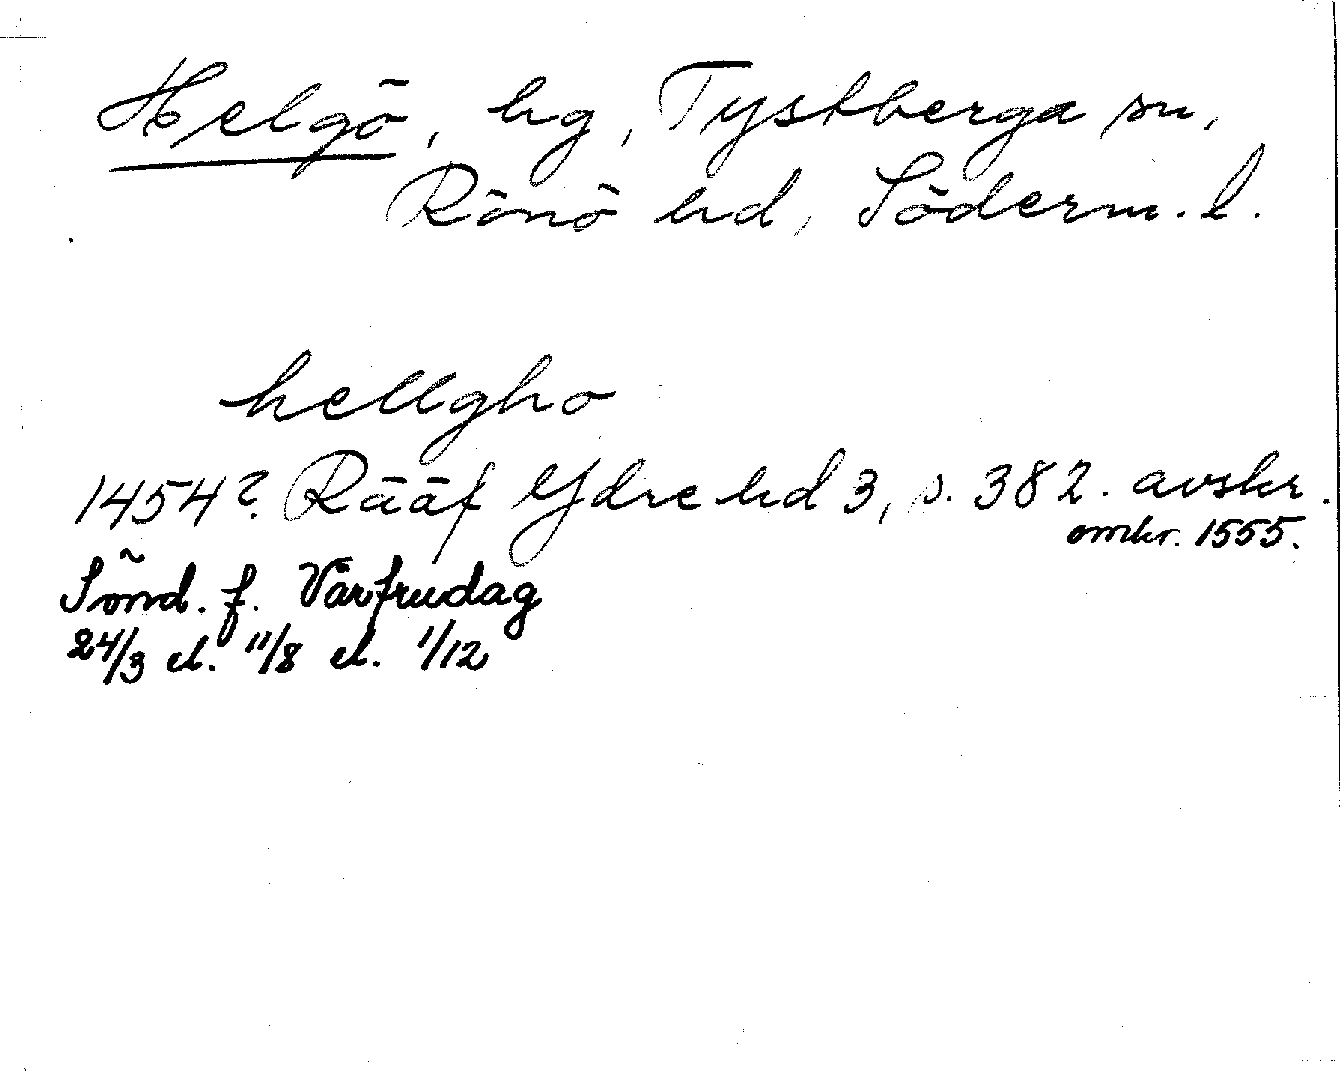 Helgö, hg, Tystberga sn,
Rönö hd, Söderm. l.
hellgho
1454? Rääf Ydre hd 3, s. 382. avskr.
omkr. 1555.
Sönd. f. Vårfrudag
24/3 el. 11/8 el. 1/12